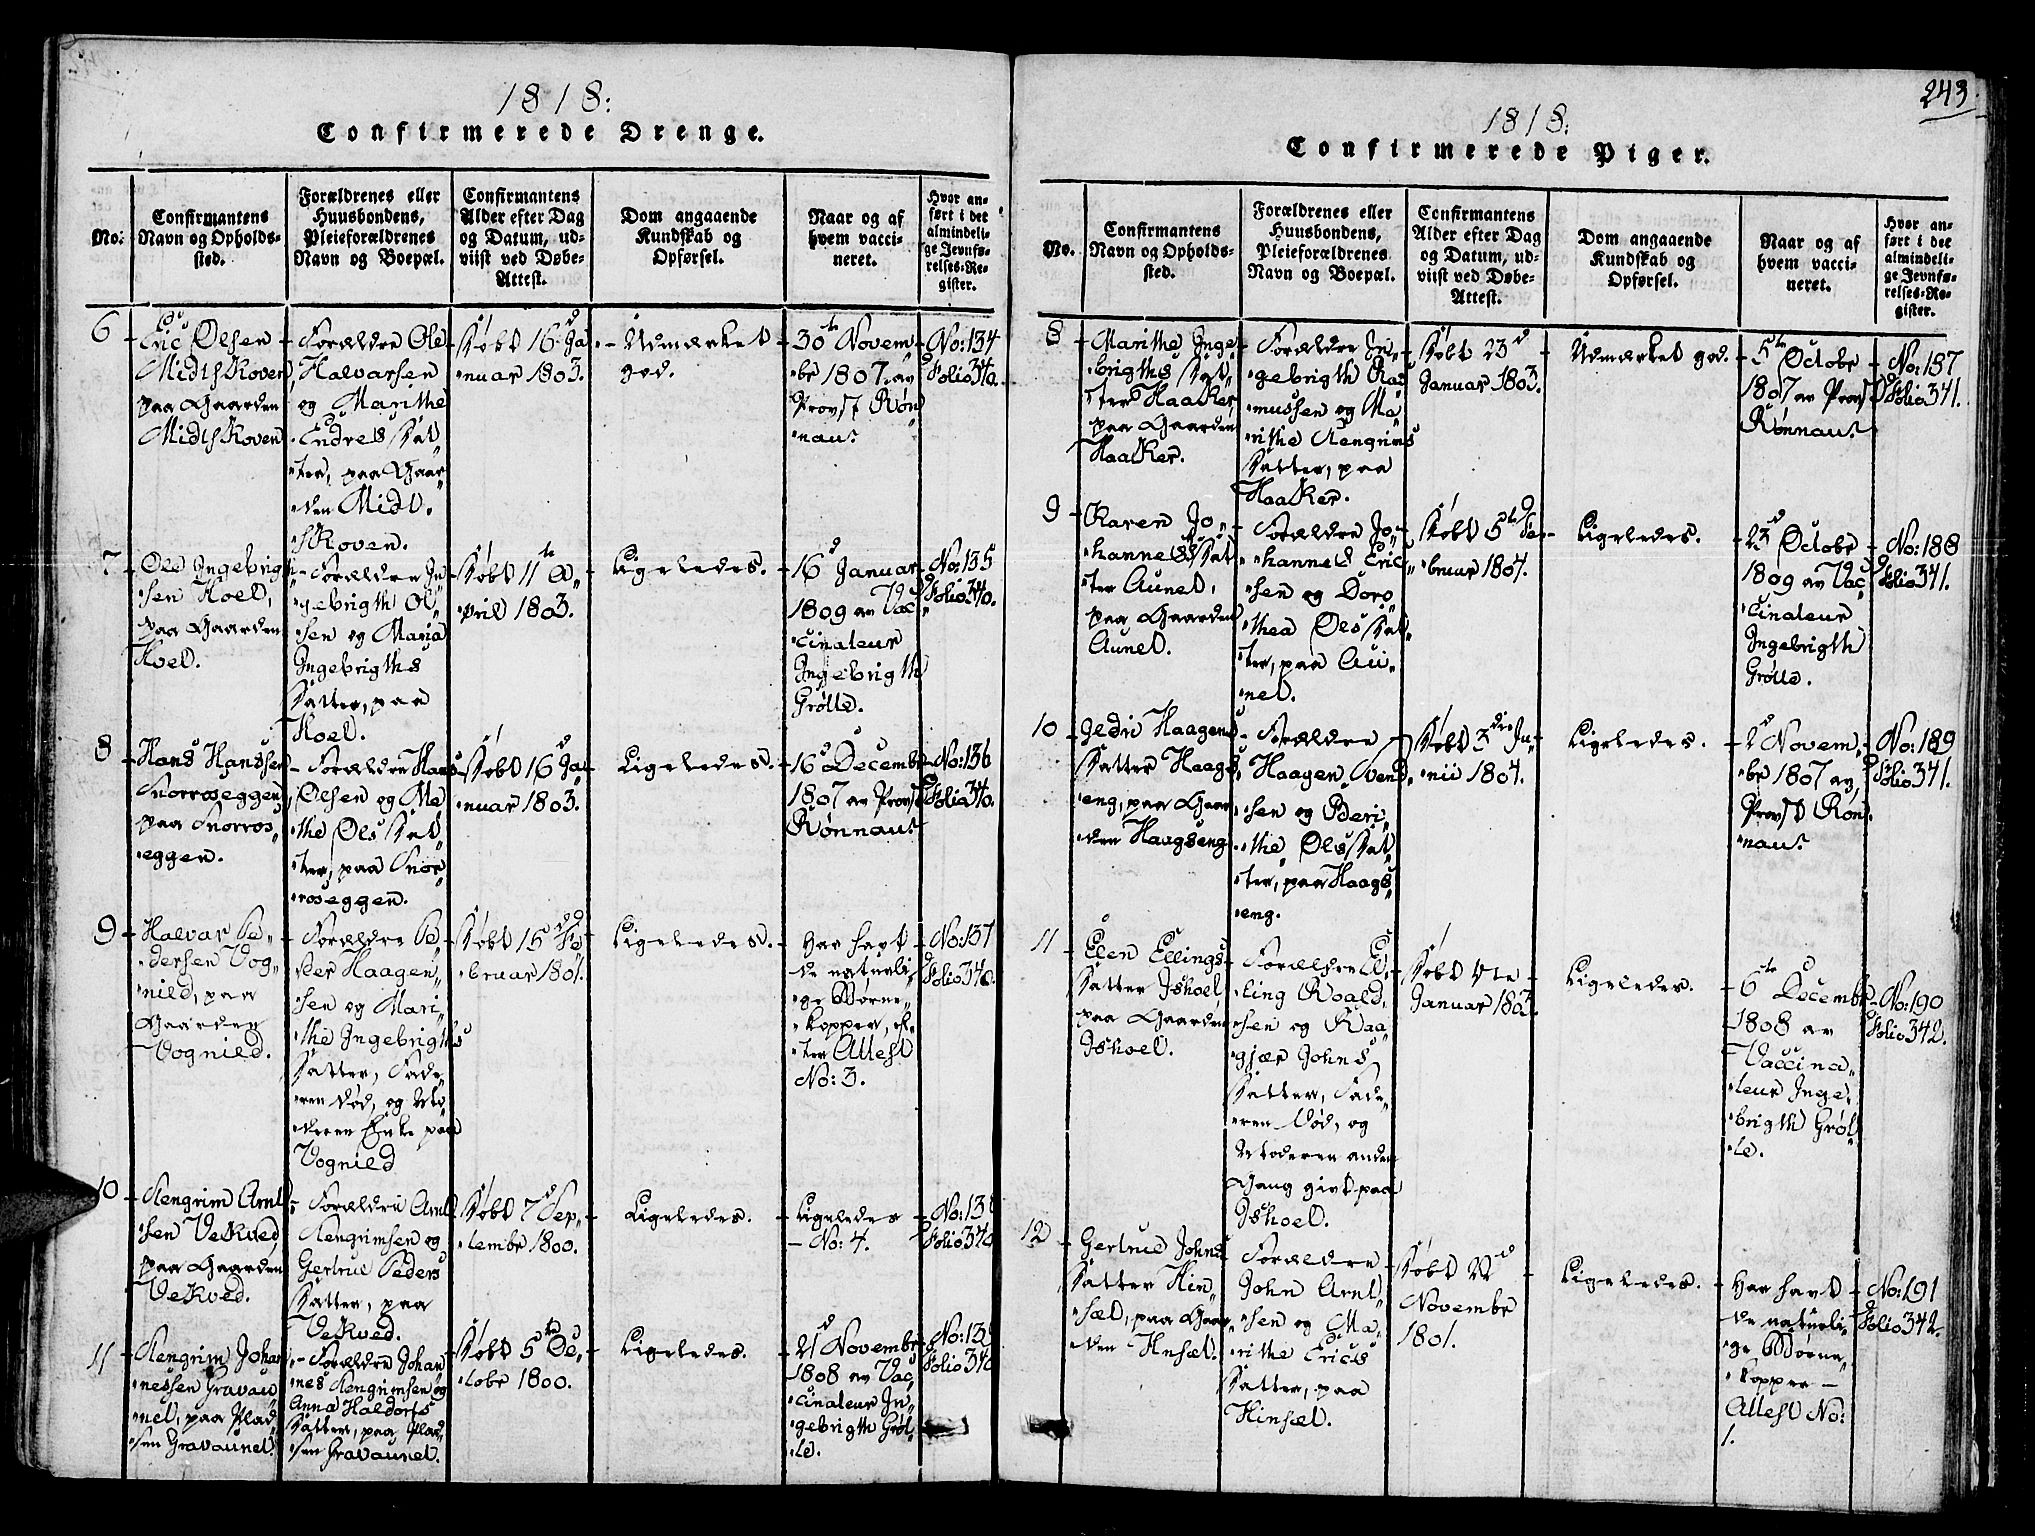 1818:
Confirmerede Drenge.
No:
Confirmantens
Navn og Opholds-
sted.
Forældrenes eller
Huusbondens,
Pleieforældrenes
Navn og Boepæl.
Confirmantens
Alder efter Dag
og Datum, ud-
viist ved Døbe-
Attest.
Dom angaaende
Kundskab og
Opførsel.
Naar og af
hvem vacci-
neret.
Hvor an-
ført i det
almindeli-
ge Jevnfø-
relses-Re-
gister.
6
Eric Olsen
Midtskoven
paa Gaarden
Midtskoven
Forældre Ole
Halvarsen
og Marithe
Endresdat
ter, paa Gaar
den Midt
skoven.
Døbt 16d Ja
nuar 1803.
Udmærket
god.
30te Novem
br 1807. av
Provst Røn
nau.
No: 134
Folio 340.
7
Ole Ingebrigt
sen Hoel,
paa Gaarden
Hoel.
Forældre In
gebrigth Ol
sen og Maria
Ingebrigths
datter, paa
Hoel.
Døbt 11te A
pril 1803.
Ligeledes.
16d Januar
1809 av Vac
cinateur
Ingebrigth
Grølle.
No: 135
Folio 340.
8
Hans Hanssen
Snorroseggen,
paa Snorros
eggen.
Forældre Hans
Olsen og Ma
the Olsdat
ter, paa Snor
roseggen.
Døbt 16d Ja
nuar 1803.
Ligeledes.
16d Decembr
1807 av Provst
Rønnau.
No: 136
Folio 340.
9
Halvar Pe
dersen Vog
nild, paa
Gaarden
Vognild.
Forældre Pe
der Haagen
sen og Mari
the Ingebrigths
datter, Fade
ren død, og Mo
deren Enke paa
Vognild
Døbt 15d Fe
bruar 1801.
Ligeledes.
Har havt
de naturli
ge Børne
kopper, ef
ter Attest
No: 3.
No: 137
Folio 340.
10
Rengrim Arnt
sen Vekved
paa Gaarden
Vekved.
Forældre Arnt
Rengrimsen og
Gertrue Peders
datter, paa
Vekved.
Døbt 7d Sep
tembr 1800.
Ligeledes.
Ligeledes
No: 4.
No: 138
Folio 340
11
Rengrim Johan
nessen Gravau
net, paa Plad
sen Gravaunet.
Forældre Johan
nes Rengrimsen og
Anna Haldors
datter, paa Plad
sen Gravaunet.
Døbt 5te Oc
tobr 1800.
Ligeledes.
21d Novembr
1808 av Vac
cinateur In
gebrigth Grøl
le.
No: 139
Folio 340
243.
1818:
Confirmerede Piger.
No.
Confirmantens
Navn og Opholds-
sted.
Forældrenes eller
Huusbondens,
Pleieforældrenes
Navn og Boepæl.
Confirmantens
Alder efter Dag
og Datum, ud-
viist ved Døbe-
Attest.
Dom angaaende
Kundskab og
Opførsel.
Naar og af
hvem vacci-
neret.
Hvor an-
ført i det
almindeli-
ge Jevnfø-
relses-Re-
gister.
8
Marithe Inge
brigths dat
ter Haaker
paa Gaarden
Haaker.
Forældre In
gebrigth Ras
mussen og Ma
rithe Rengrims
datter, paa
Haaker.
Døbt 23d
Januar 1803.
Udmærket god.
5te Octobr
1807 av Provst
Rønnau.
No: 187
Folio 341.
9
Karen Jo
hannesdat
ter Aunet,
paa Gaarden
Aunet.
Forældre Jo
hannes Eric
sen og Doro
thea Olsdat
ter, paa Au
net.
Døbt 5te Fe
bruar 1804.
Ligeledes.
23d Octobr
1809 av Vac
cinateur
Ingebrigth
Grølle.
No: 188
Folio 341.
10
Jediv Haagens
datter Haags
eng, paa Gaar
den Haagseng
Forældre
Haagen Svend
sen og Beri
the Olsdat
ter, paa Haags
eng.
Døbt 3die Ju
nii 1804.
Ligeledes.
2d Novem
br 1807 av
Provst Røn
nau.
No: 189
Folio 341.
11
Elen Ellings
datter Ishoel
paa Gaarden
Ishoel.
Forældre El
ling Roald
sen og Raa
gjær Johns
datter, Fade
ren død, og
Moderen anden
Gang givt paa
Ishoel.
Døbt
Januar 1803.
Ligeledes.
6te Decembr
1808 av
Vaccina
teur Inge
brigth Grøl
le.
No: 190
Folio 342.
12
Gertrue Johns
datter Hin
sæt, paa Gaar
den Hinsæt.
Forældre
John Arnt
sen og Ma
rithe Erics
datter, paa
Hinsæt.
Døbt 22d
Novembr
1801.
Ligeledes.
Har havt
de naturli
ge Børne
kopper
Attest No:
1.
No: 191
Folio 342.